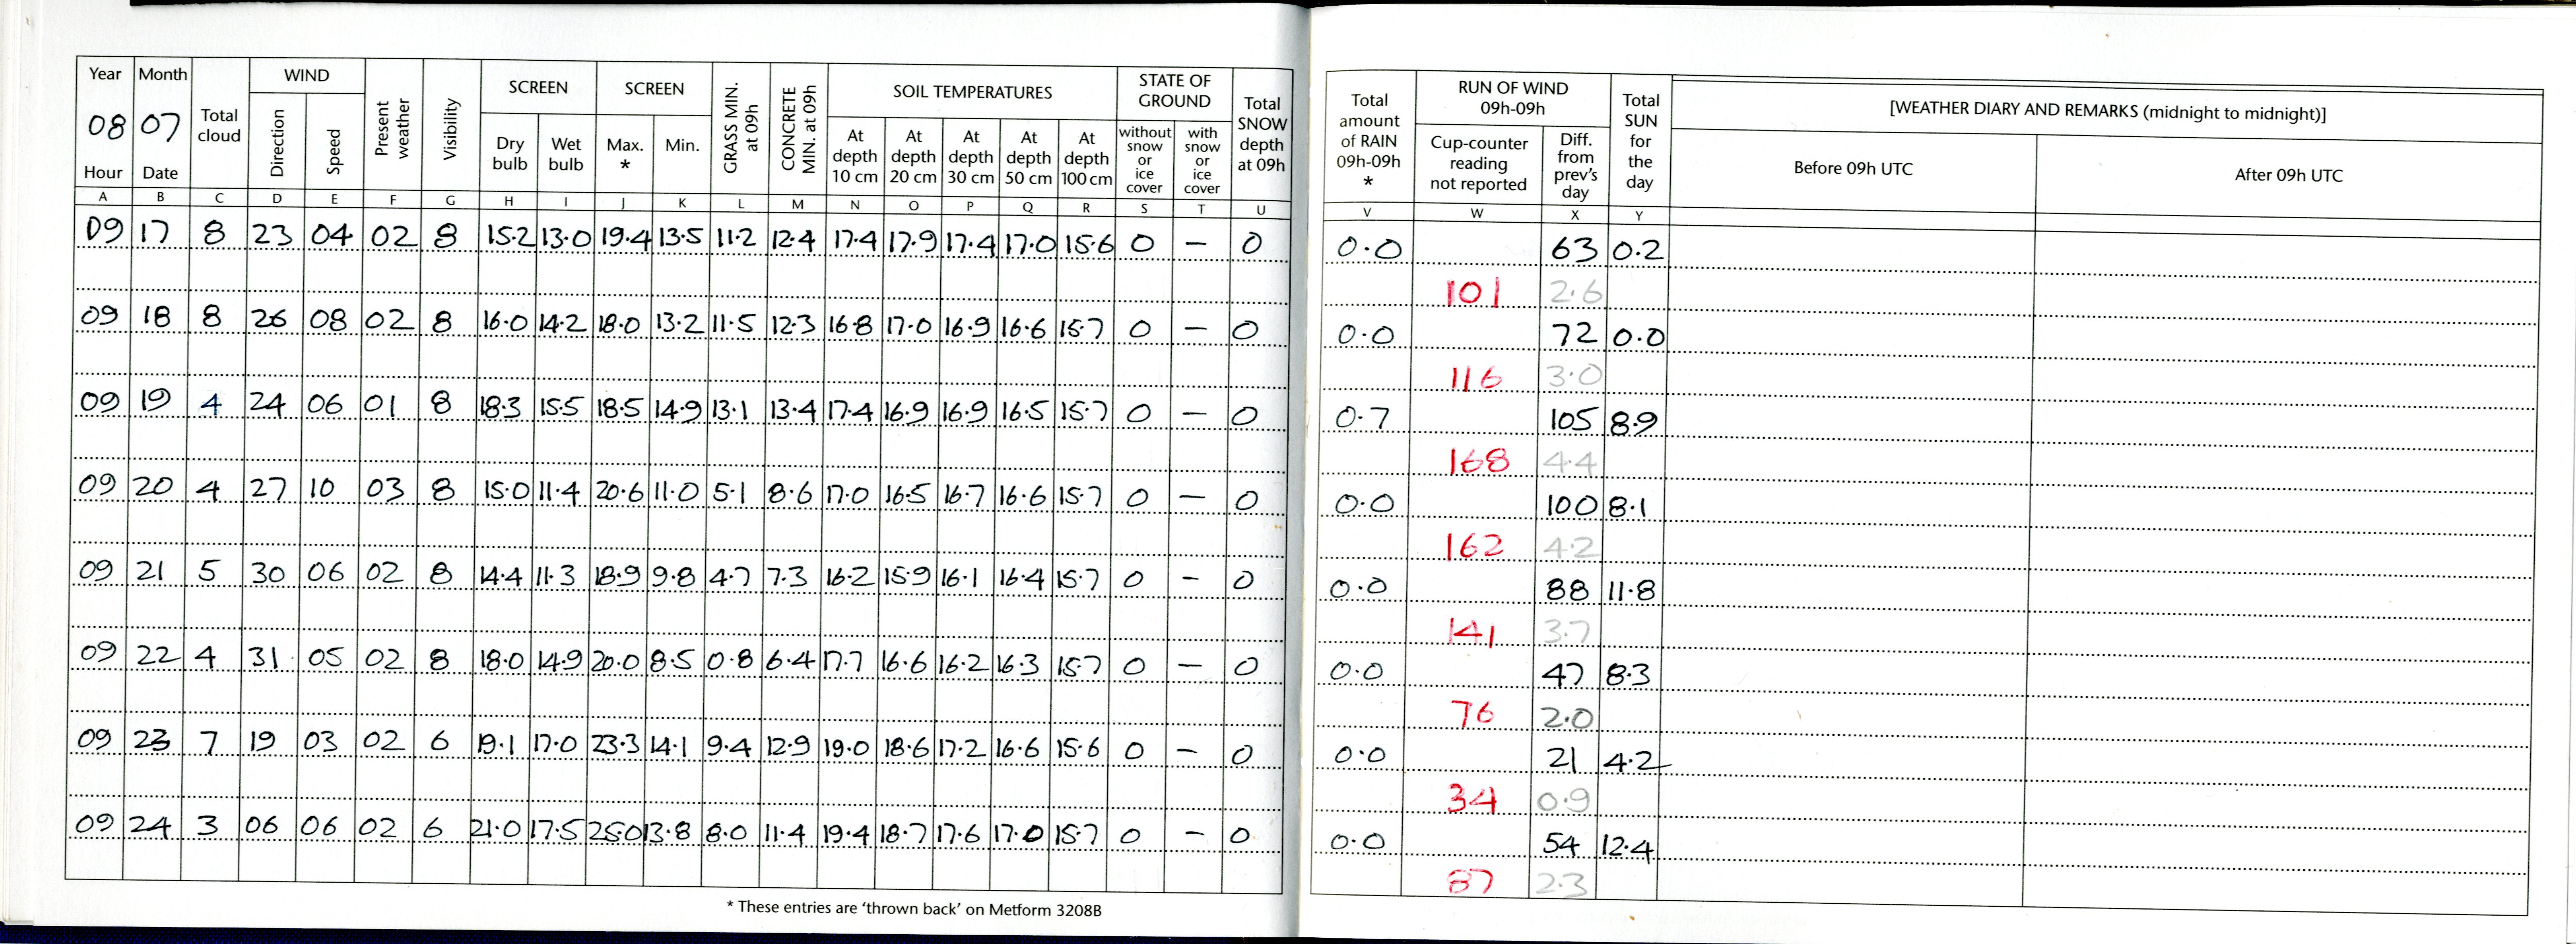 Year Month Total cloud WIND Present weather Visibility SCREEN SCREEN GRASS MIN. at 09h CONCRETE MIN. at 09h SOIL TEMPERATURES STATE OF GROUND Total SNOW depth at 09h
08 07 Direction Speed Dry bulb Wet bulb Max. * Min. At depth 10 cm At depth 20 cm At depth 30 cm At depth 50 cm At depth 100 cm without snow or ice cover with snow or ice cover
Hour Date
A B C D E F G H I J K L M N O P Q R S T U
09 17 8 23 04 02 8 15.2 13.0 19.4 13.5 11.2 12.4 17.4 17.9 17.4 17.0 15.6 0 – 0
09 18 8 26 08 02 8 16.0 14.2 18.0 13.2 11.5 12.3 16.8 17.0 16.9 16.6 15.7 0 – 0
09 19 4 24 06 01 8 18.3 15.5 18.5 14.9 13.1 13.4 17.4 16.9 16.9 16.5 15.7 0 – 0
09 20 4 27 10 03 8 15.0 11.4 20.6 11.0 5.1 8.6 17.0 16.5 16.7 16.6 15.7 0 – 0
09 21 5 30 06 02 8 14.4 11.3 18.9 9.8 4.7 7.3 16.2 15.9 16.1 16.4 15.7 0 – 0
09 22 4 31 05 02 8 18.0 14.9 20.0 8.5 0.8 6.4 17.7 16.6 16.2 16.3 15.7 0 – 0
09 23 7 19 03 02 6 19.1 17.0 23.3 14.1 9.4 12.9 19.0 18.6 17.2 16.6 15.6 0 – 0
09 24 3 06 06 02 6 21.0 17.5 25.0 13.8 8.0 11.4 19.4 18.7 17.6 17.0 15.7 0 – 0
* These entries are ‘thrown back’ on Metform 3208B
Total amount of RAIN 09h-09h * RUN OF WIND 09h-09h Total SUN for the day [WEATHER DIARY AND REMARKS (midnight to midnight)]
Cup-counter reading not reported Diff. from prev's day Before 09h UTC After 09h UTC
V W X Y
0.0 63 0.2
101 2.6
0.0 72 0.0
116 3.0
0.7 105 8.9
168 4.4
0.0 100 8.1
162 4.2
0.0 88 11.8
141 3.7
0.0 47 8.3
76 2.0
0.0 21 4.2
34 0.9
0.0 54 12.4
87 2.3